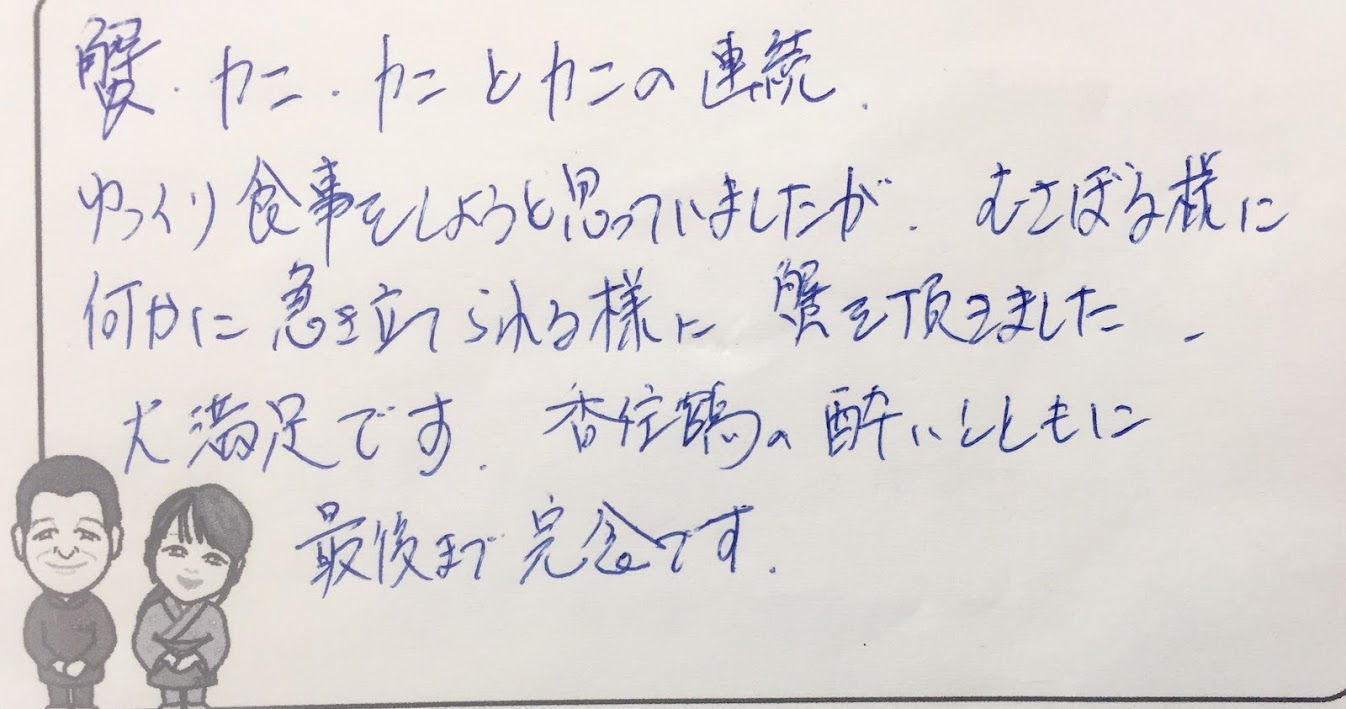 蟹・カニ・カニとカニの連続.
ゆっくり食事をしようと思っていましたが. むさぼる様に
何かに急き立てられる様に 蟹を頂きました.
大満足です. 香住鶴の酔いとともに
最後まで完食です.